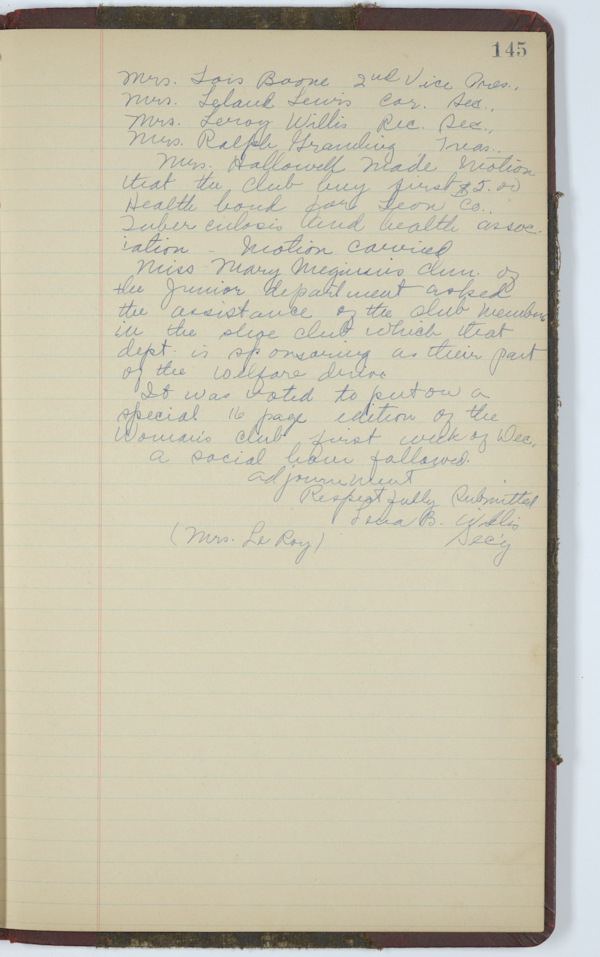 145
Mrs. Lois Boone 2nd Vice Pres.,
Mrs. Leland Lewis Cor. Sec.,
Mrs. Leroy Willis Rec. Sec.,
Mrs. Ralph Grandling Treas.
Mrs. Hallowell made motion
that the club buy first $5.00
Health bond for Leon Co.,
Tuberculosis and health assoc-
iation - Motion carried
Miss Mary Meginnis Chm. of
the Junior department asked
the assistance of the club members
in the shoe club which that
dept. is sponsoring as their part
of the welfare drive
It was voted to put on a
special 16 page edition of the
Woman's club first week of Dec.
a social hour followed.
adjournment
Respectfully Submitted
B. Willis
(Mrs. Le Roy) Sec'y